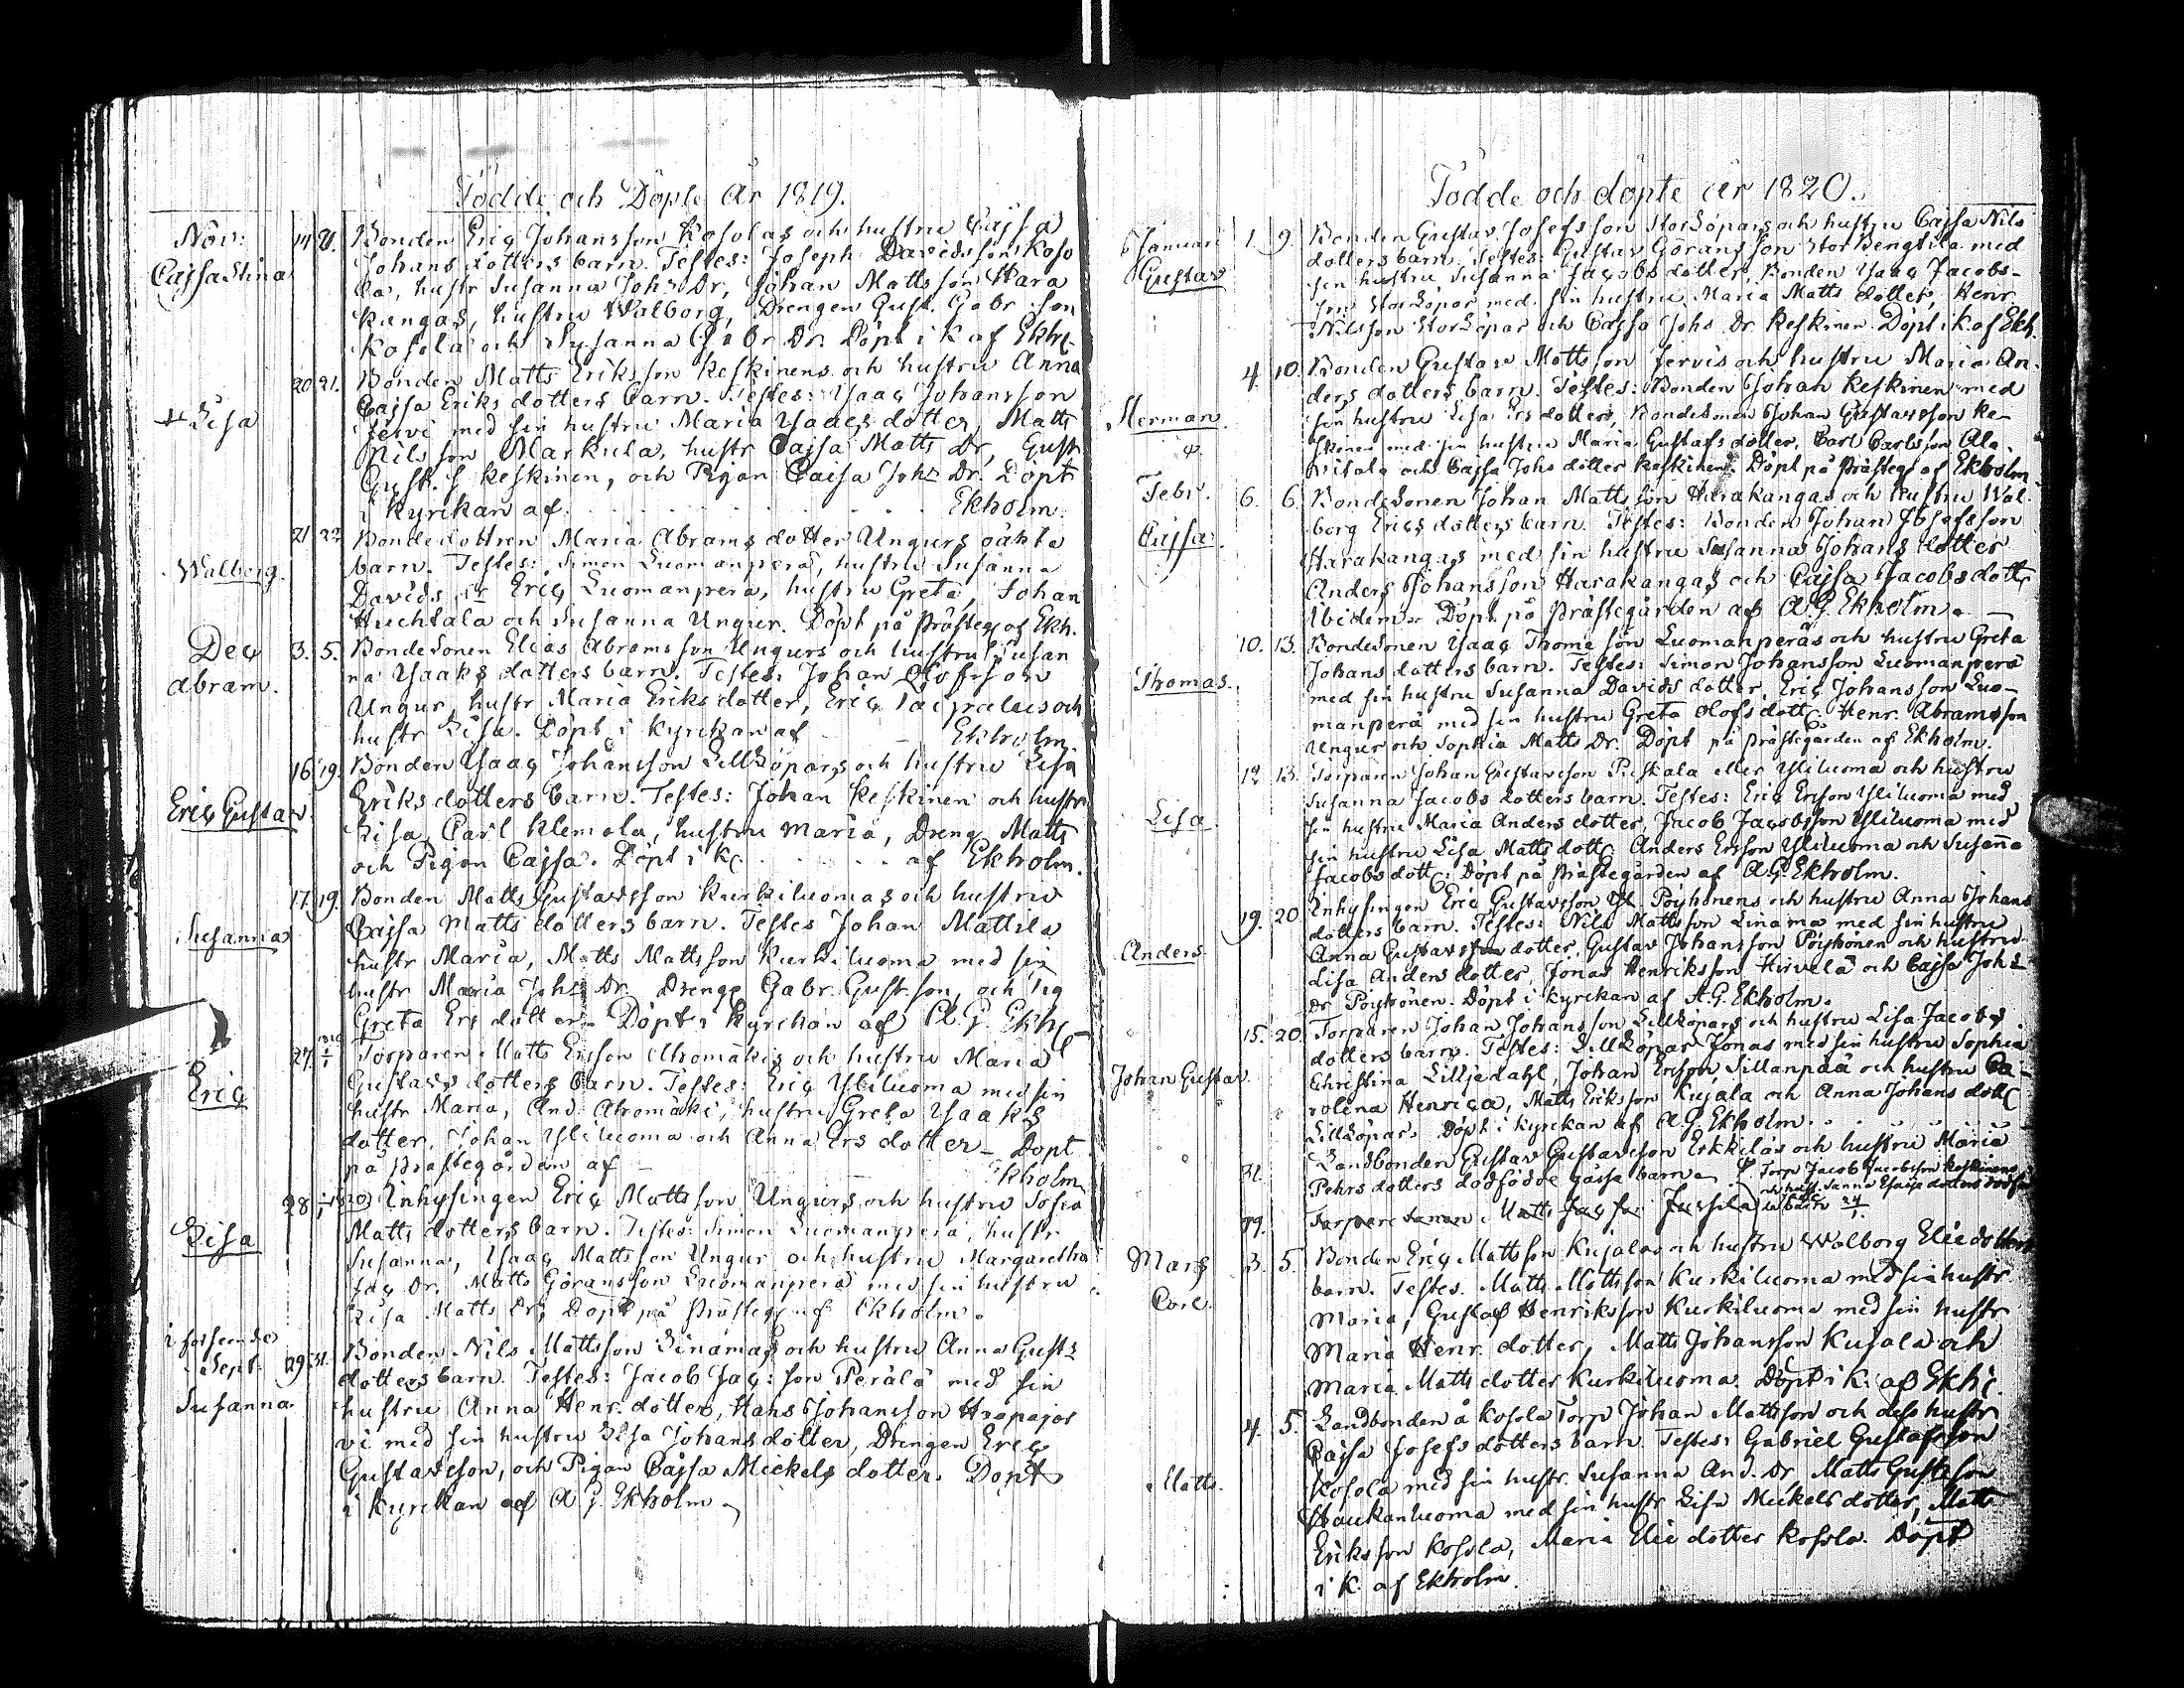 Födde och Döpte År 1819.
Nov: 14 21. Bonden Eric Johansson Kosolas och hustru Cajsa
CajsaStina Johans dotters barn. Testes: Joseph Davidsson Koso
la, hustr Susanna Johs Dr, Johan Mattsson Hara
kangas, hustru Walborg, Drengen Gust. Gabr. son
Kosola och Susanna Gabr Dr. Döpt i K af Ekh
20 21. Bonden Matts Eriksson Keskinens och hustru Anna
Lisa Cajsa Eriks dotters barn. Testes: Isaac Johansson
Jervi med sin hustru Maria Isaacs dotter, Matts
Nilsson Markula, hustr Cajsa Matts Dr, Gustr
Gust. S Keskinen, och Pigan Caisa Johs Dr. Döpt
i Kyrkan af Ekholm.
21 22 Bondedottren Maria Abrams dotter Ungurs oäkta
Walborg. barn. Testes: Simon Luomanperä, hustru Susanna
Davids Dr Eric Luomanpera, hustru Greta, Johan
Huchtala och Susanna Ungur. Döpt på Prästeg af Ekh.
Dec 3. 5. BondeSonen Elias Abramsson Ungurs och hustru Susan
Abram. na Isaaks dotters barn. Testes: Johan Olofsson
Ungur, hustr Maria Eriks dotter, Eric och
hustr Lisa. Döpt i Kyrkan af Ekholm.
16 19. Bonden Isaac Johansson Lillköpars och hustru Lisa
Eric Gustav. Eriks dotters barn. Testes: Johan Keskinen och hustr
Lisa, Carl Klemola, hustru Maria, Dreng Matts
och Pigan Cajsa. Döpt i K. af Ekholm.
17. 19. Bonden Matts Gustavsson Kurkiluomas och hustru
Susanna Cajsa Matts dotters barn. Testes Johan Mattila
hustr Maria, Matts Mattsson Kurkiluoma med sin
hustr Maria Johs Dr. Drenge Gabr. Gust. son, och Pig
Greta Ers dotter. Döpt i Kyrkan af A. G. Ekh
27. Torparen Matts Ersson Ahomäkis och hustru Maria
Eric Gustavs dotters barn. Testes: Eric Yliluoma med sin
hustr Maria, And. Ahomäki, hustru Greta Isaaks
dotter, Johan Yliluoma och Anna Ers dotter. Döpt
på Prästegården af Ekholm
28 Inhysingen Eric Mattsson Ungurs och hustru Sofia
Lisa Matts dotters barn. Testes: Simon Luomanpera, hustr
Susanna, Isaac Mattsson Ungur och hustru Margaretha
Jac Dr. Matts Göransson Luomanperä med sin hustru
Lisa Matts Dr, Döpt på Prästeg af Ekholm.
Sept. 29 31. Bonden Nils Mattsson Linamas och hustru Anna Gusts
dotters barn. Testes: Jacob Jac: son Perälä med sin
Susanna. hustru Anna Henr. dotter, Hans Johansson Haapajär
vi med sin hustru Lisa Johans dotter, Drengen Eric
Gustavsson, och Pigan Cajsa Mickels dotter. Döpt
i Kyrkan af A. G. Ekholm
Födde och döpte år 1820.
Januari 1. 9. Bonden Gustav Josefsson Storköpars och hustru Cajsa Nils
Gustav dotters barn. Testes: Gustav Göransson StorBengtila med
sin hustru Susanna Jacobs dotter, Bonden Isaac Jacobs-
son Storköpar med sin hustru Maria Matts dotter, Henr.
Nilsson Storköpar och Cajsa Johs Dr. Keskinen. Döpt i K. af Ekh.
4. 10. Bonden Gustav Mattsson Jervis och hustru Maria An-
ders dotters barn. Testes: Bonden Johan Keskinen med
Herman sin hustru Lisa Ers dotter, Bondesonen Johan Gustavsson Ke-
skinen med sin hustru Maria Gustafs dotter, Carl Carlsson Ala-
och Cajsa Johs dotter Keskinen. Döpt på Prästeg. af Ekholm
Febr. 6. 6. BondeSonen Johan Mattsson Harakangas och hustru Wal-
Cajsa borg Erics dotters barn. Testes: Bonden Johan Josefsson
Harakangas med sin hustru Susanna Johans dotter
Anders Johansson Harakangas och Cajsa Jacobs dott
Ibidem. Döpt på Prästegården af A. G. Ekholm.
10. 13. BondeSonen Isaac Thome son Luomanperäs och hustru Greta
Johans dotters barn. Testes: Simon Johansson Luomanperä
Thomas. med sin hustru Susanna Davids dotter, Eric Johansson Luo-
manperä med sin hustru Greta Olofs dott Henr. Abramsson
Ungur och Sophia Matts Dr. Döpt på Prästegården af Ekholm.
12 13. Torparn Johan Gustavsson eller Yliluoma och hustru
Susanna Jacobs dotters barn. Testes: Eric Ersson Yliluoma med
Lisa sin hustru Maria Anders dotter, Jacob Jacobsson Yliluoma med
sin hustru Lisa Matts dott. Anders Ersson Yliluoma och Susanna
Jacobs dott: Döpt på Prästegården af A G. Ekholm.
19. 20 Inhysingen Eric Gustavsson Yl. Pöyhönens och hustru Anna Johans
dotters barn. Testes: Nils Mattsson Linama med sin hustru
Anders Anna Gustavs dotter, Gustav Johansson Pöyhönen och hustru
Lisa Anders dotter Jonas Henriksson Hirvelä och Cajsa Johs
Dr Pöyhönen. Döpt i Kyrkan af A. G. Ekholm.
15. 20. Torparen Johan Johansson Lillköpars och hustru Lisa Jacobs
dotters barn. Testes: Lillköpar Jonas med sin hustru Sophia
Johan Gustav Christina Lilljedahl, Johan Ersson Sillanpää och hustru Ca-
rolina Henrica, Matts Eriksson Kujala och Anna Johans dott
Lillköpar. Döpt i Kyrkan af A. G. Ekholm.
31. Landbonden Gustav Gustavsson Erkkiläs och hustru Maria
Pehrs dotters dödfödde gosse barn. Torp Jacob Jacobsson Keskinens
Torpare Sonen Matts Jussila
Mars 3. 5. Bonden Eric Mattsson Kujalas och hustru Walborg Elie dotters
Carl. barn. Testes. Matts Mattsson Kurkiluoma med sin hustr
Maria, Gustaf Henriksson Kurkiluoma med sin hustr
Maria Henr. dotter, Matts Johansson Kujala och
Maria Matts dotter Kurkiluoma. Döpt i K. af Ekh.
4. 5. Landbonden å Kosola Torp Johan Mattsson och dess hustr
Cajsa Josefs dotters barn. Testes: Gabriel Gustafsson
Matts. Kosola med sin hustr. Susanna And. Dr, Matts Gustafson
Haukanluoma med sin hustr Lisa Mickels dotter, Matts
Eriksson Kosola, Maria Elie dotter Kosola. Döpt
i K. af Ekholm.